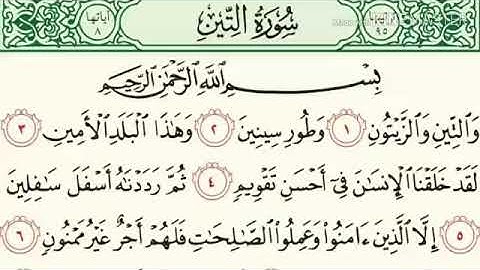 آياتها ٨ سُورَةُ التِّينِ ٩٥
بِسْمِ ٱللَّهِ ٱلرَّحْمَٰنِ ٱلرَّحِيمِ
وَٱلتِّينِ وَٱلزَّيْتُونِ ١ وَطُورِ سِينِينَ ٢ وَهَٰذَا ٱلْبَلَدِ ٱلْأَمِينِ ٣
لَقَدْ خَلَقْنَا ٱلْإِنسَٰنَ فِىٓ أَحْسَنِ تَقْوِيمٍ ٤ ثُمَّ رَدَدْنَٰهُ أَسْفَلَ سَٰفِلِينَ
٥ إِلَّا ٱلَّذِينَ ءَامَنُوا۟ وَعَمِلُوا۟ ٱلصَّٰلِحَٰتِ فَلَهُمْ أَجْرٌ غَيْرُ مَمْنُونٍ ٦